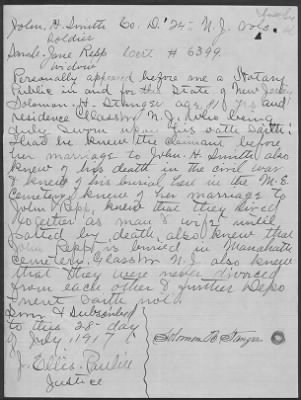 John, H. Smith Co. D. '24 - N. J. Vols.
Soldier
Sarah-Jane Repp Cert # 6399.
Widow
Personally appeared before me a Notary
Public in and for the State of New Jersey,
Solomon-H-Stanger age 81 yrs and
residence Glassboro N. J. who being
duly sworn upon his oath saith:
That he knew the claimant before
her marriage to John-H. Smith also
knew of his death in the civil war
& knew of his burial in the M.E.
Cemetery knew of her marriage to
John Repp, knew that they lived
together as man & wife until
parted by death, also knew that
John Repp is buried in Manahath
cemetery, Glassboro N. J. also knew
that they were never divorced
from each other & further depo
nent saith not.
Sworn & Subscribed
to this 28- day
of July 1917
Solomon H Stanger
J. Ellis. Paulin
Justice